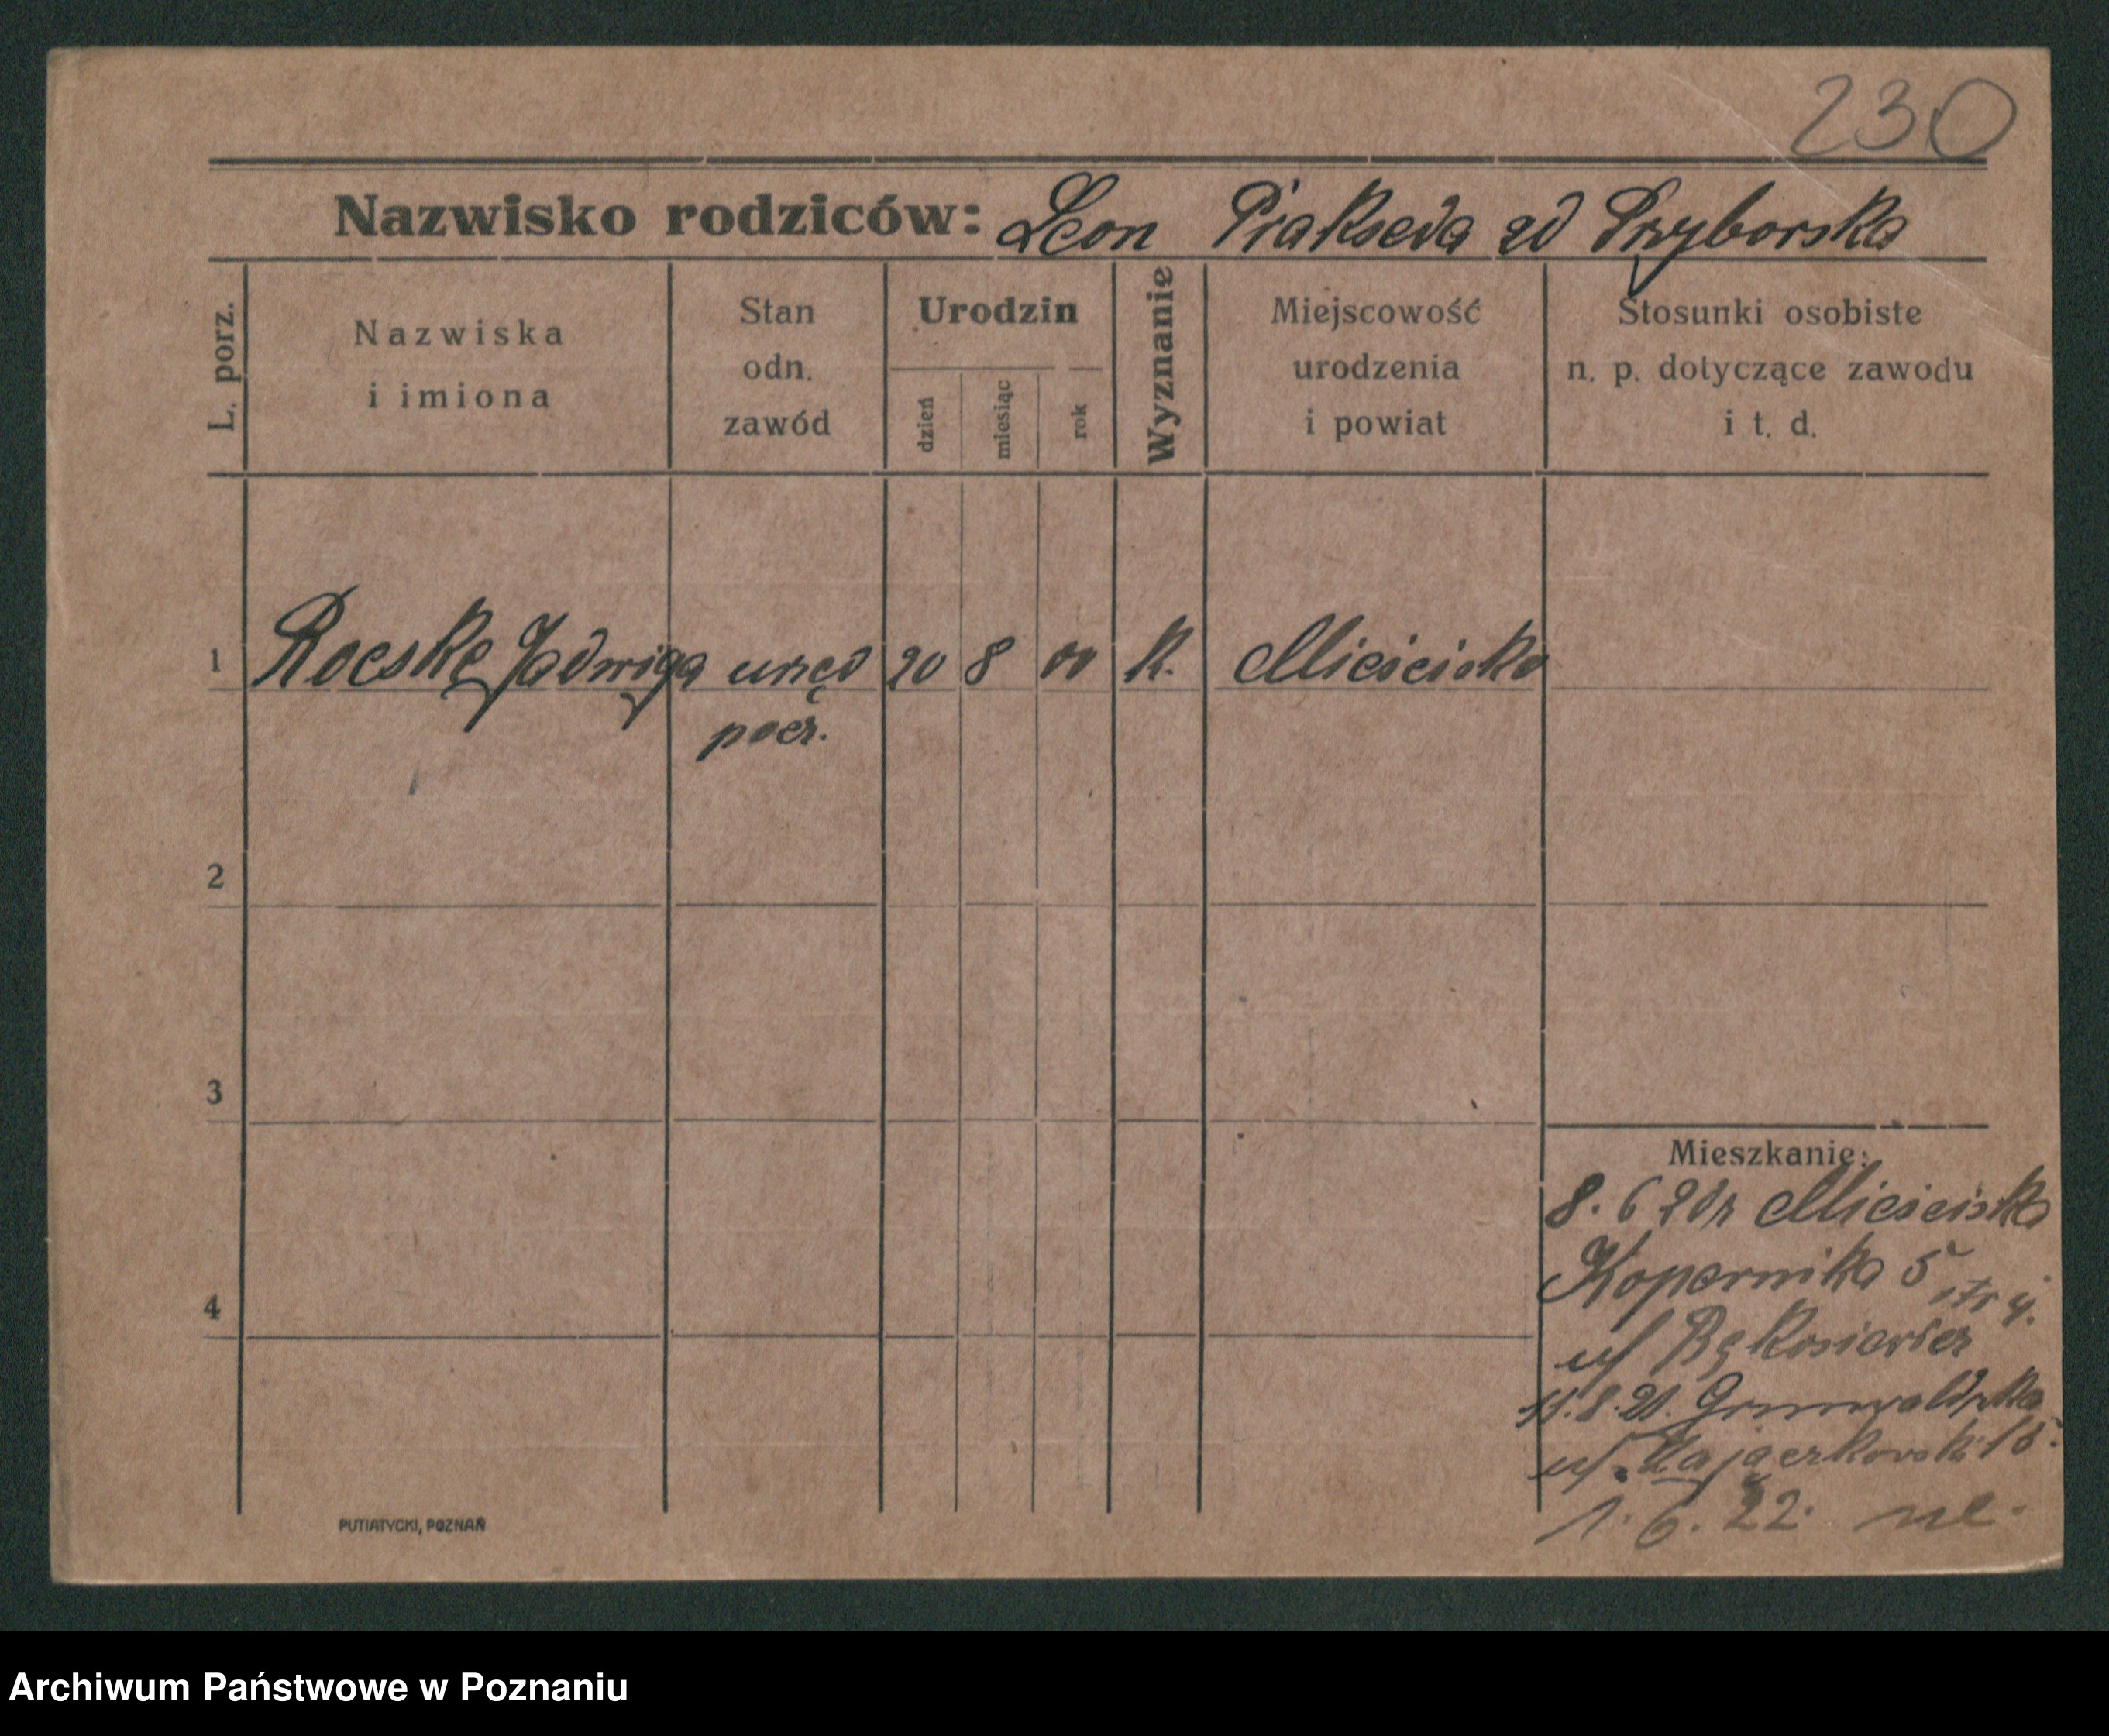 230
Nazwisko rodziców: Leon Prakseda zd Przyborska
L. porz.
Nazwiska
i imiona
Stan
odn.
zawód
Urodzin
dzień
miesiąc
rok
Wyznanie
Miejscowość
urodzenia
i powiat
Stosunki osobiste
n. p. dotyczące zawodu
i t. d.
1 Roeske Jadwiga urzęd 20 8 00 k. Mieścisko
pocz.
2
3
4
Mieszkanie:
8. 6 Mieścisko
Kopernika 5
u/
Grunwaldzka
u/
1. 6. 22.
PUTIATYCKI, POZNAŃ
Archiwum Państwowe w Poznaniu